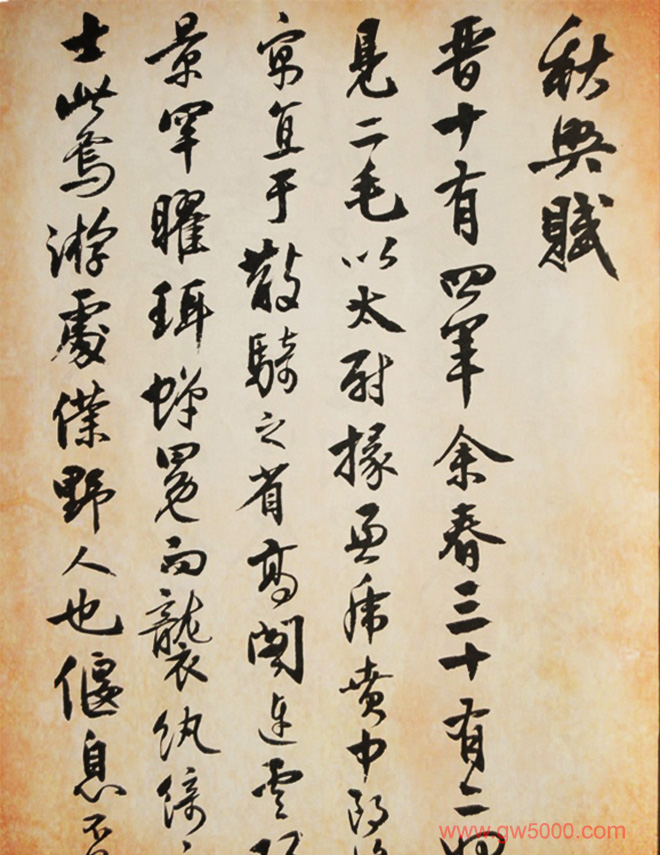 秋興賦
晋十有四年余春三十有二始
見二毛以太尉掾兼虎賁中郎將
寓直于散騎之省高閣連雲陽
景罕曜珥蟬冕而襲紈綺之
士此焉游處僕野人也偃息不
www.gw5000.com